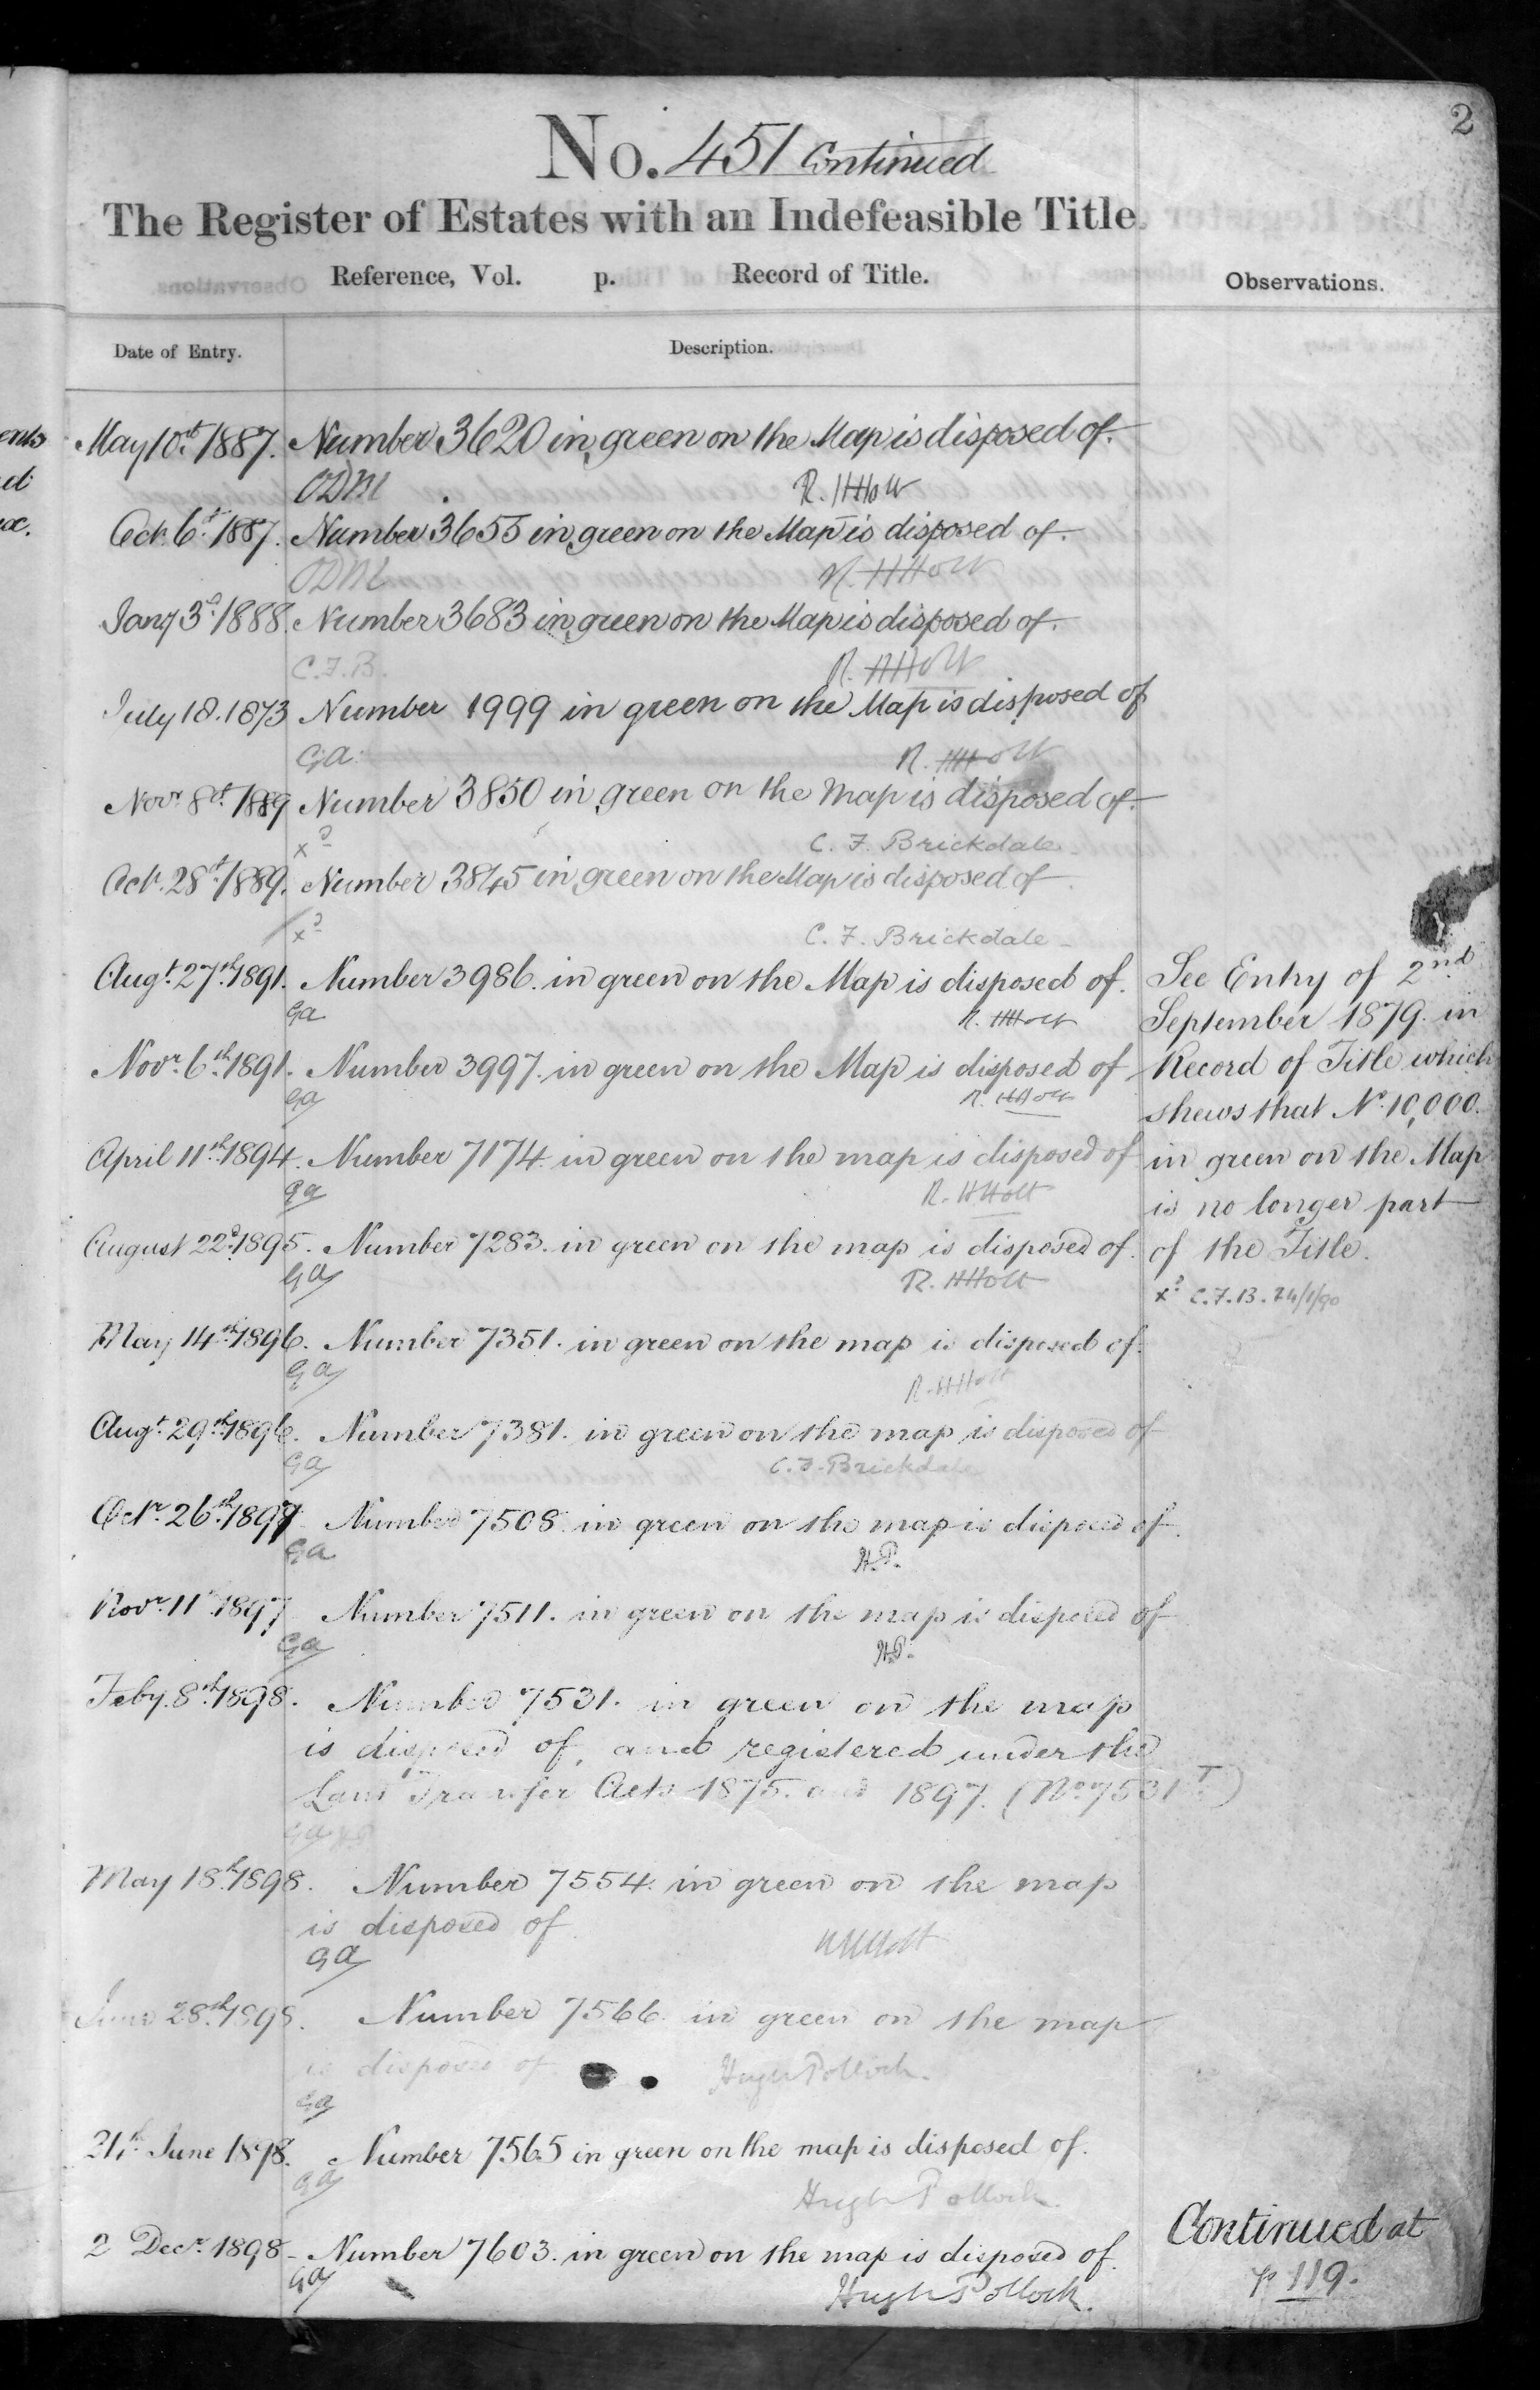 2
No. 451 Continued
The Register of Estates with an Indefeasible Title.
Reference, Vol. p. Record of Title.
Observations.
Date of Entry.
Description.
May 10th 1887. Number 3620 in green on the Map is disposed of.
R. H Holt
Oct. 6th 1887. Number 3655 in green on the Map is disposed of.
R. H Holt
Jany 3d 1888. Number 3683 in green on the Map is disposed of.
C.F.B. R. H Holt
July 18. 1873 Number 1999 in green on the Map is disposed of
GA. R. H Holt
Novr 8th 1889 Number 3850 in green on the Map is disposed of.
xd C. F. Brickdale
Oct. 28th 1889. Number 3845 in green on the Map is disposed of.
xd C. F. Brickdale
Augt. 27th 1891. Number 3986. in green on the Map is disposed of.
GA R. H Holt
Novr. 6th 1891. Number 3997. in green on the Map is disposed of
GA R. H Holt
April 11th 1894. Number 7174. in green on the map is disposed of
GA R. H Holt
August 22d 1895. Number 7283. in green on the map is disposed of.
GA R. H Holt
May 14th 1896. Number 7351. in green on the map is disposed of.
GA R. H Holt
Augt. 29th 1896. Number 7381. in green on the map is disposed of
GA C. F. Brickdale
Octr. 26th 1897 Number 7508. in green on the map is disposed of.
GA H.P.
Novr. 11th 1897 Number 7511. in green on the map is disposed of
GA H.P.
Feby. 8th 1898. Number 7531. in green on the map
is disposed of, and registered under the
Land Transfer Acts 1875. and 1897. (No. 7531 T)
GA HP
May 18th 1898. Number 7554. in green on the map
is disposed of
GA R H Holt
June 28th 1898. Number 7566. in green on the map
is disposed of Hugh Pollock.
GA
21st June 1898. Number 7565 in green on the map is disposed of.
GA Hugh Pollock.
2 Decr. 1898 - Number 7603. in green on the map is disposed of.
GA Hugh Pollock.
See Entry of 2nd
September 1879. in
Record of Title which
shews that No. 10,000.
in green on the Map
is no longer part
of the Title.
xd C.F.B. 24/1/90
Continued at
p 119.